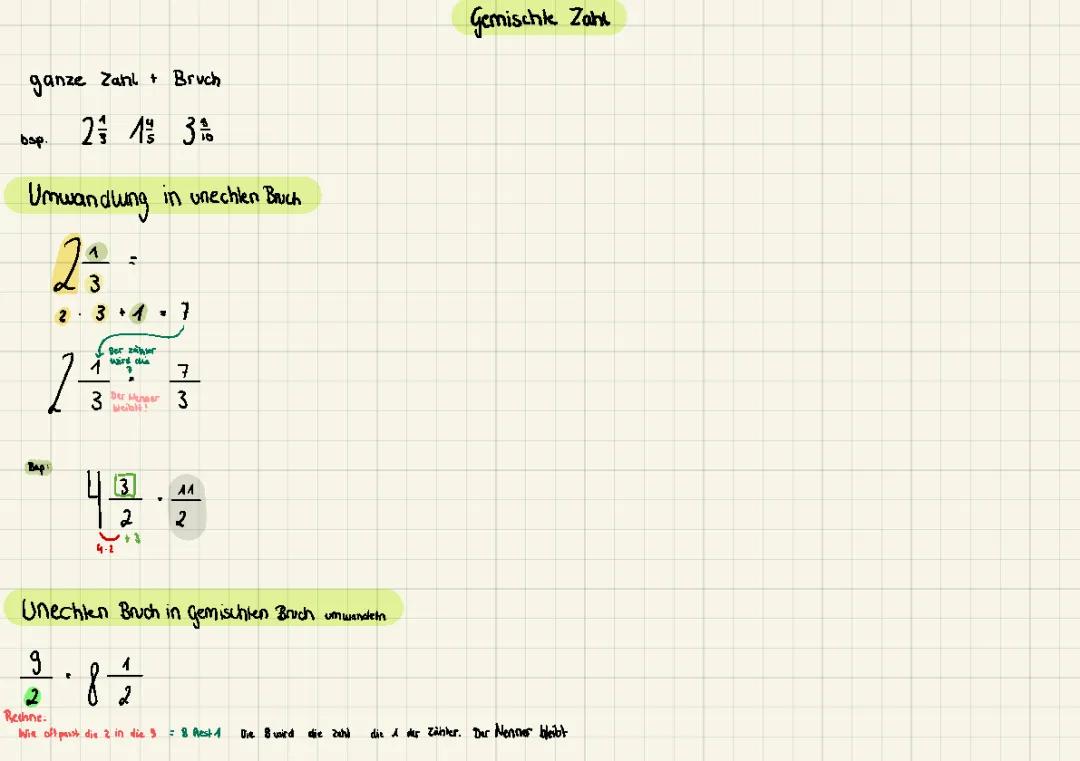 Gemischte Zahl
ganze Zahl + Bruch
bsp. 2 1/3 1 4/5 3 8/10
Umwandlung in unechten Bruch
2 1/3 =
2 · 3 + 1 = 7
Der Zähler
wird die
7
2 1/3 = 7/3
Der Nenner
bleibt!
Bsp:
4 3/2 = 11/2
4·2 + 3
Unechten Bruch in gemischten Bruch umwandeln
9/2 = 8 1/2
Rechne:
Wie oft passt die 2 in die 9 = 8 Rest 1 Die 8 wird die Zahl die 1 der Zähler. Der Nenner bleibt